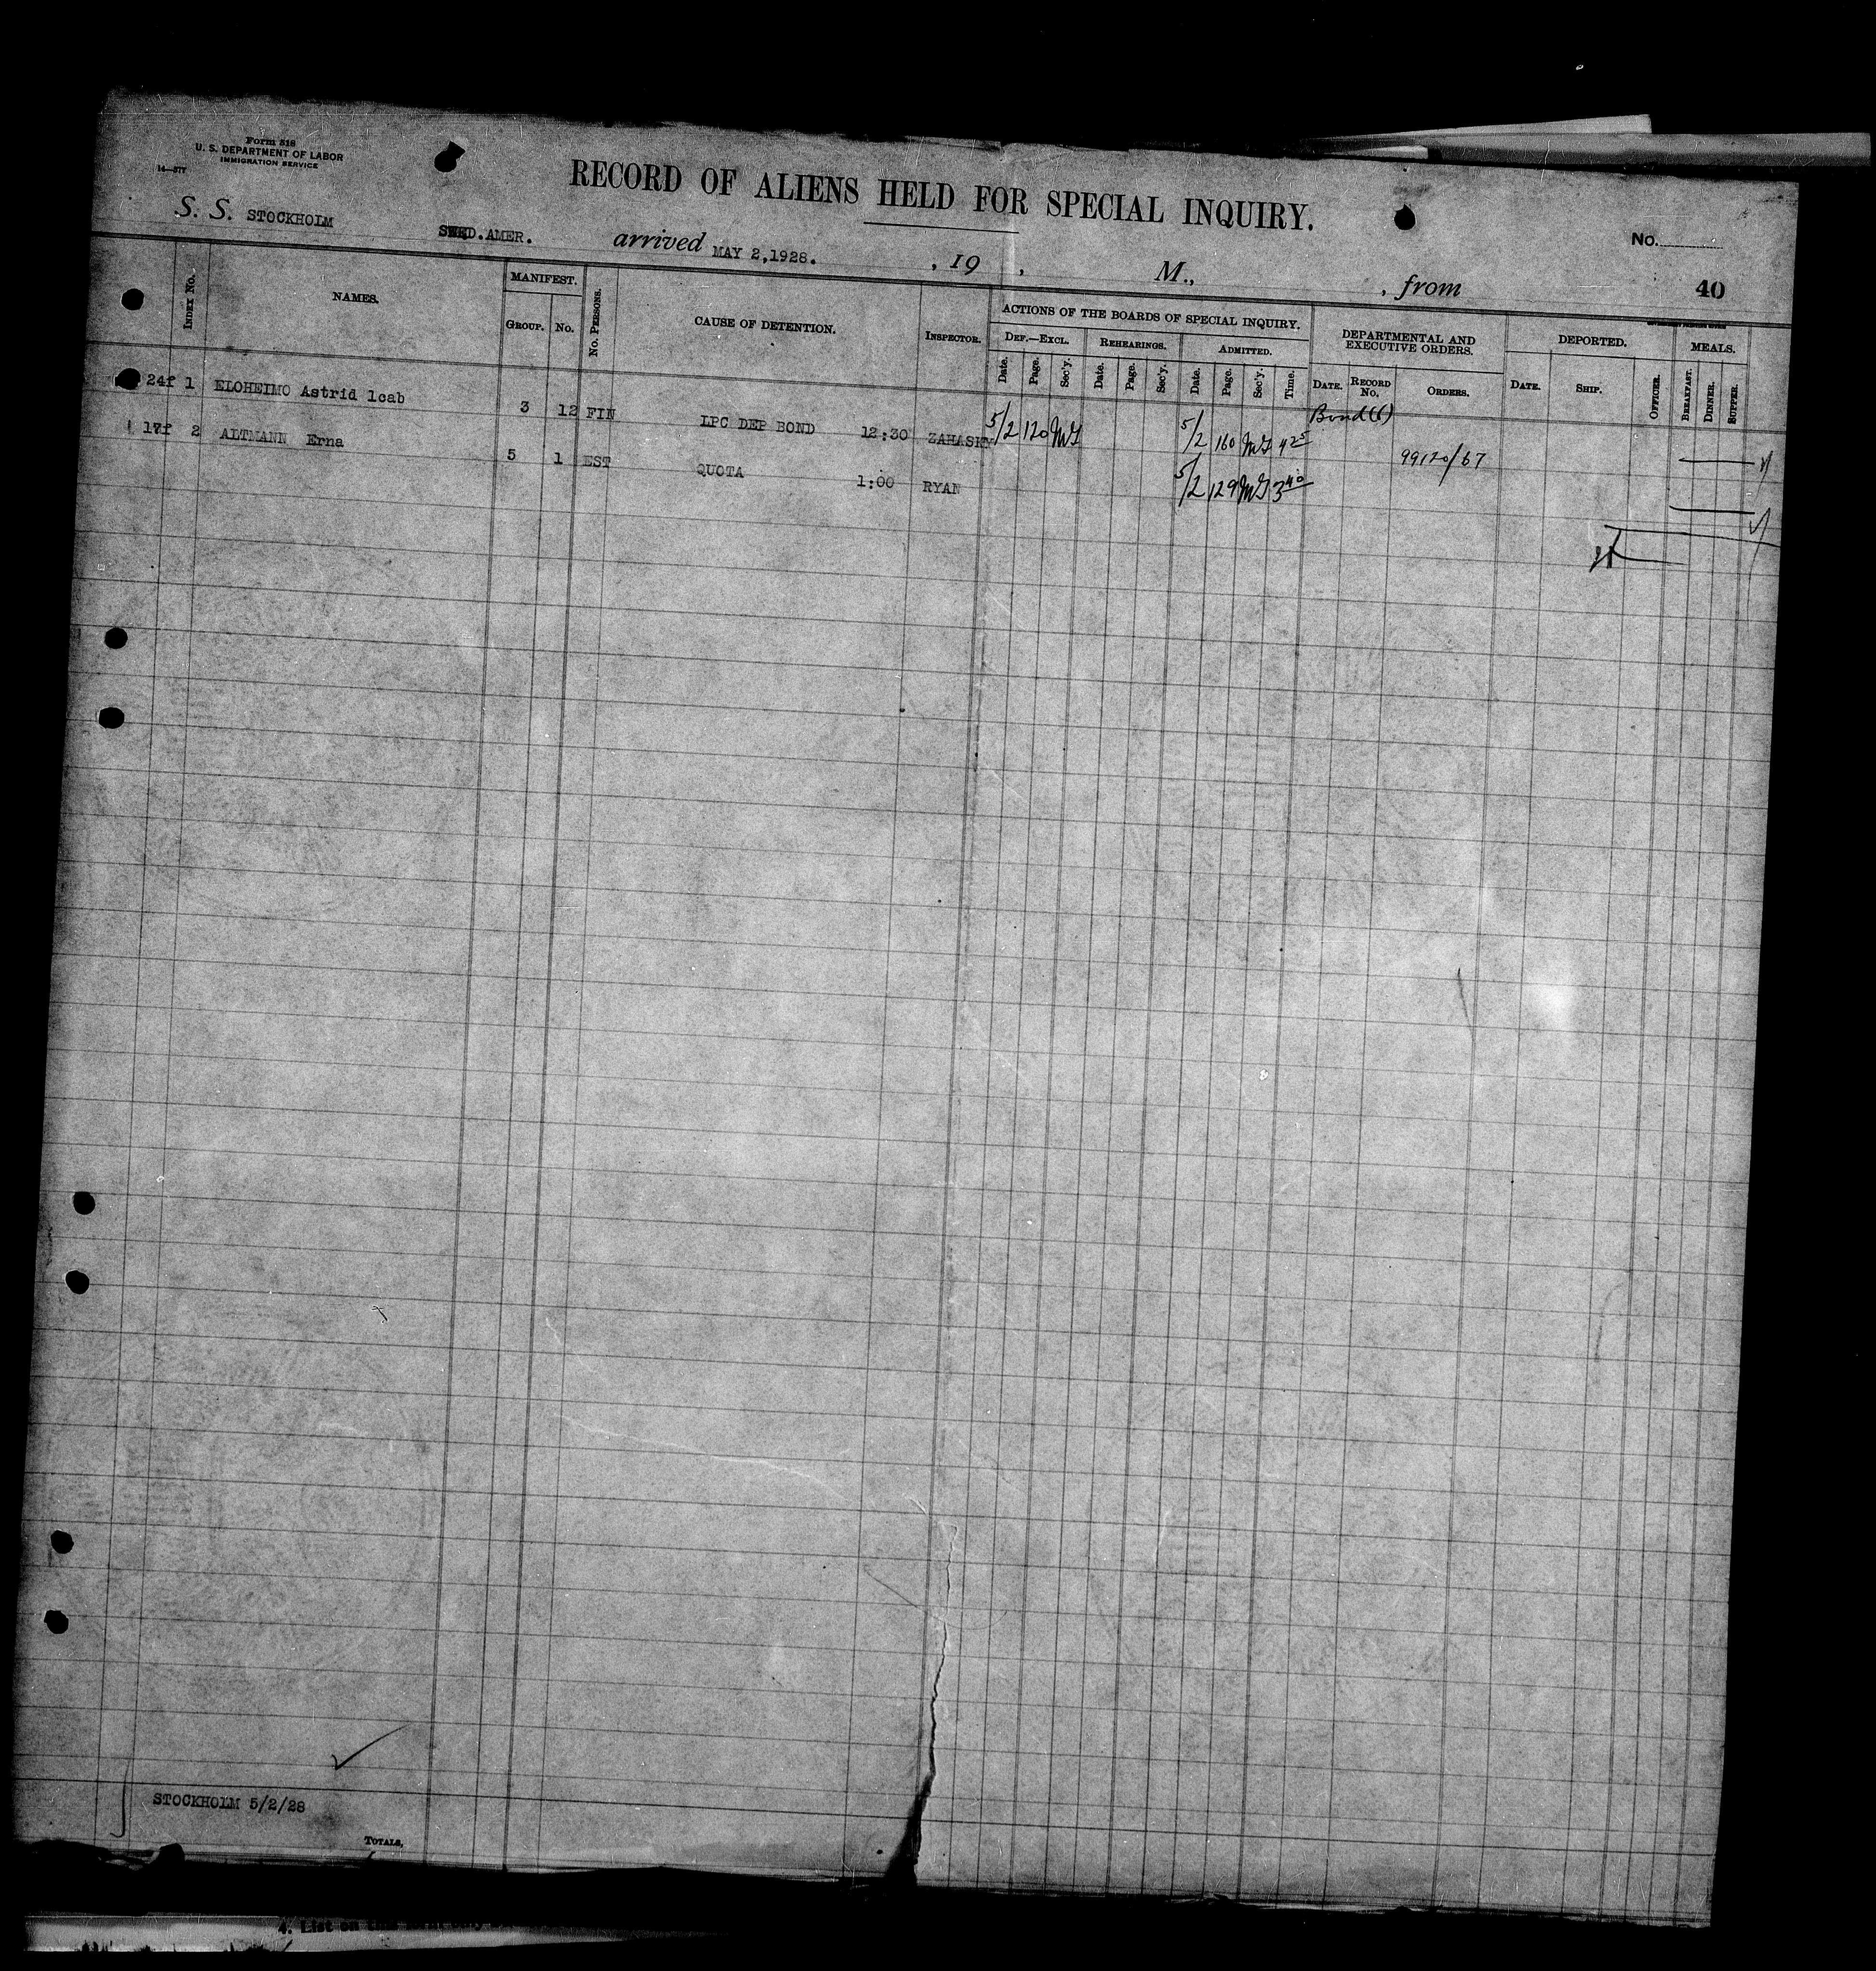 Form 518
U. S. DEPARTMENT OF LABOR
IMMIGRATION SERVICE
14—577
RECORD OF ALIENS HELD FOR SPECIAL INQUIRY.
No.
S. S. STOCKHOLM SWED.AMER. arrived MAY 2,1928. , 19 , M., , from
40
Index No.
NAMES.
MANIFEST.
Group. No.
No. Persons.
CAUSE OF DETENTION.
Inspector.
ACTIONS OF THE BOARDS OF SPECIAL INQUIRY.
Def.—Excl. Rehearings. Admitted.
Date. Page. Sec'y. Date. Page. Sec'y. Date. Page. Sec'y. Time.
DEPARTMENTAL AND
EXECUTIVE ORDERS.
Date. Record No. Orders.
DEPORTED.
Date. Ship. Officer.
MEALS.
Breakfast. Dinner. Supper.
24f 1 ELOHEIMO Astrid 1cab 3 12 FIN LPC DEP BOND 12:30 ZAHASKY 5/2 120 5/2 160 4 25 Bond (6) 99120/67
17f 2 ALTMANN Erna 5 1 EST QUOTA 1:00 RYAN 5/2 129 3 40
STOCKHOLM 5/2/28
Totals,
4. List on